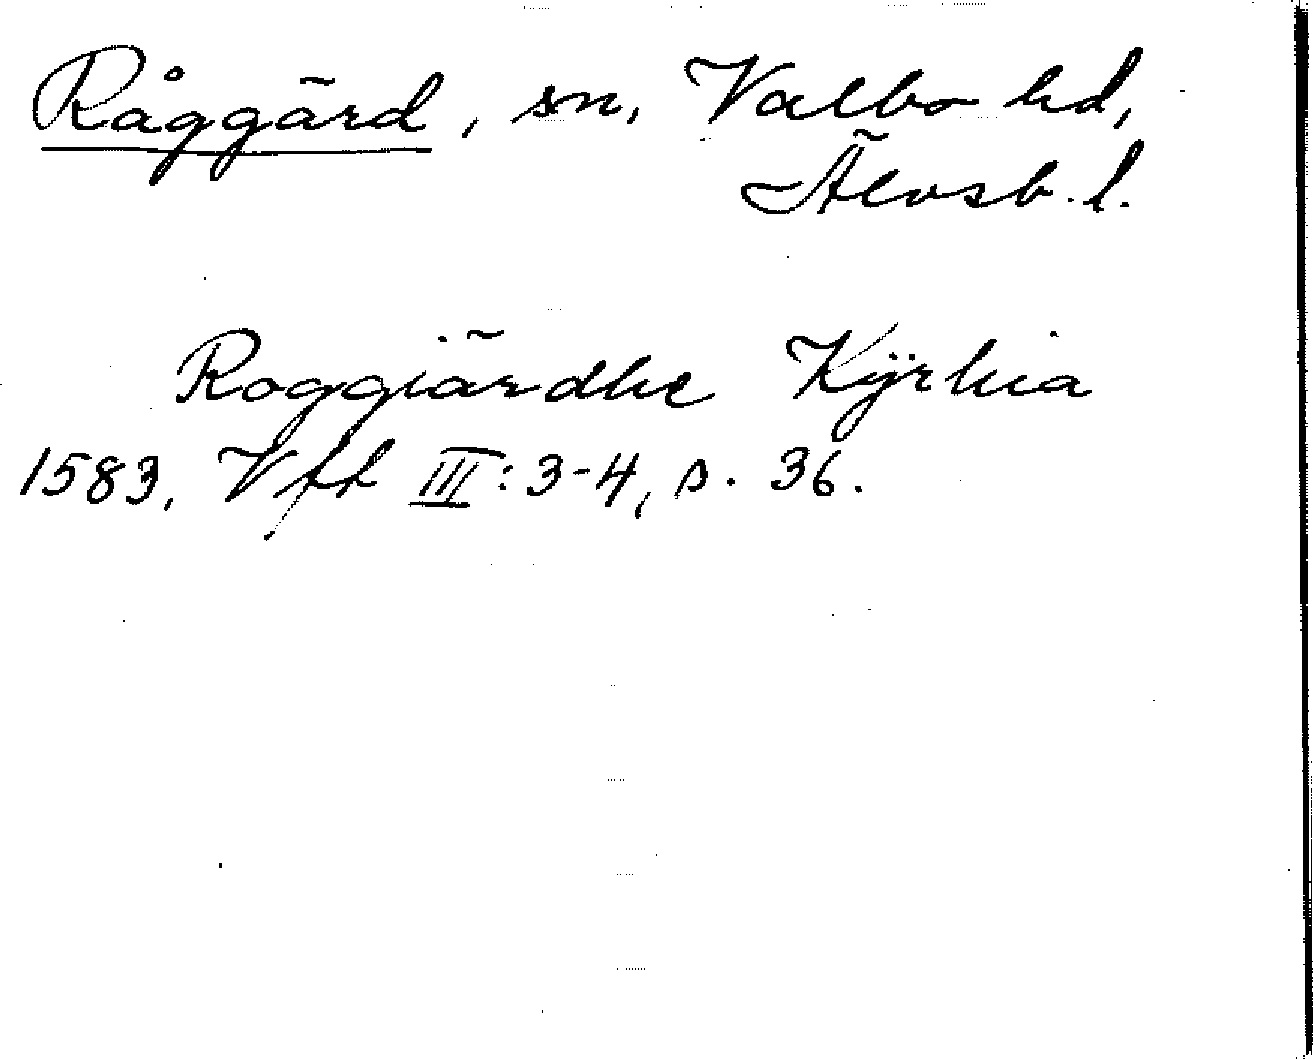 Råggärd, sn, Valbo hd,
Älvsb. l.
Roggiärdhe Kÿrkia
1583, Vft III:3-4, s. 36.